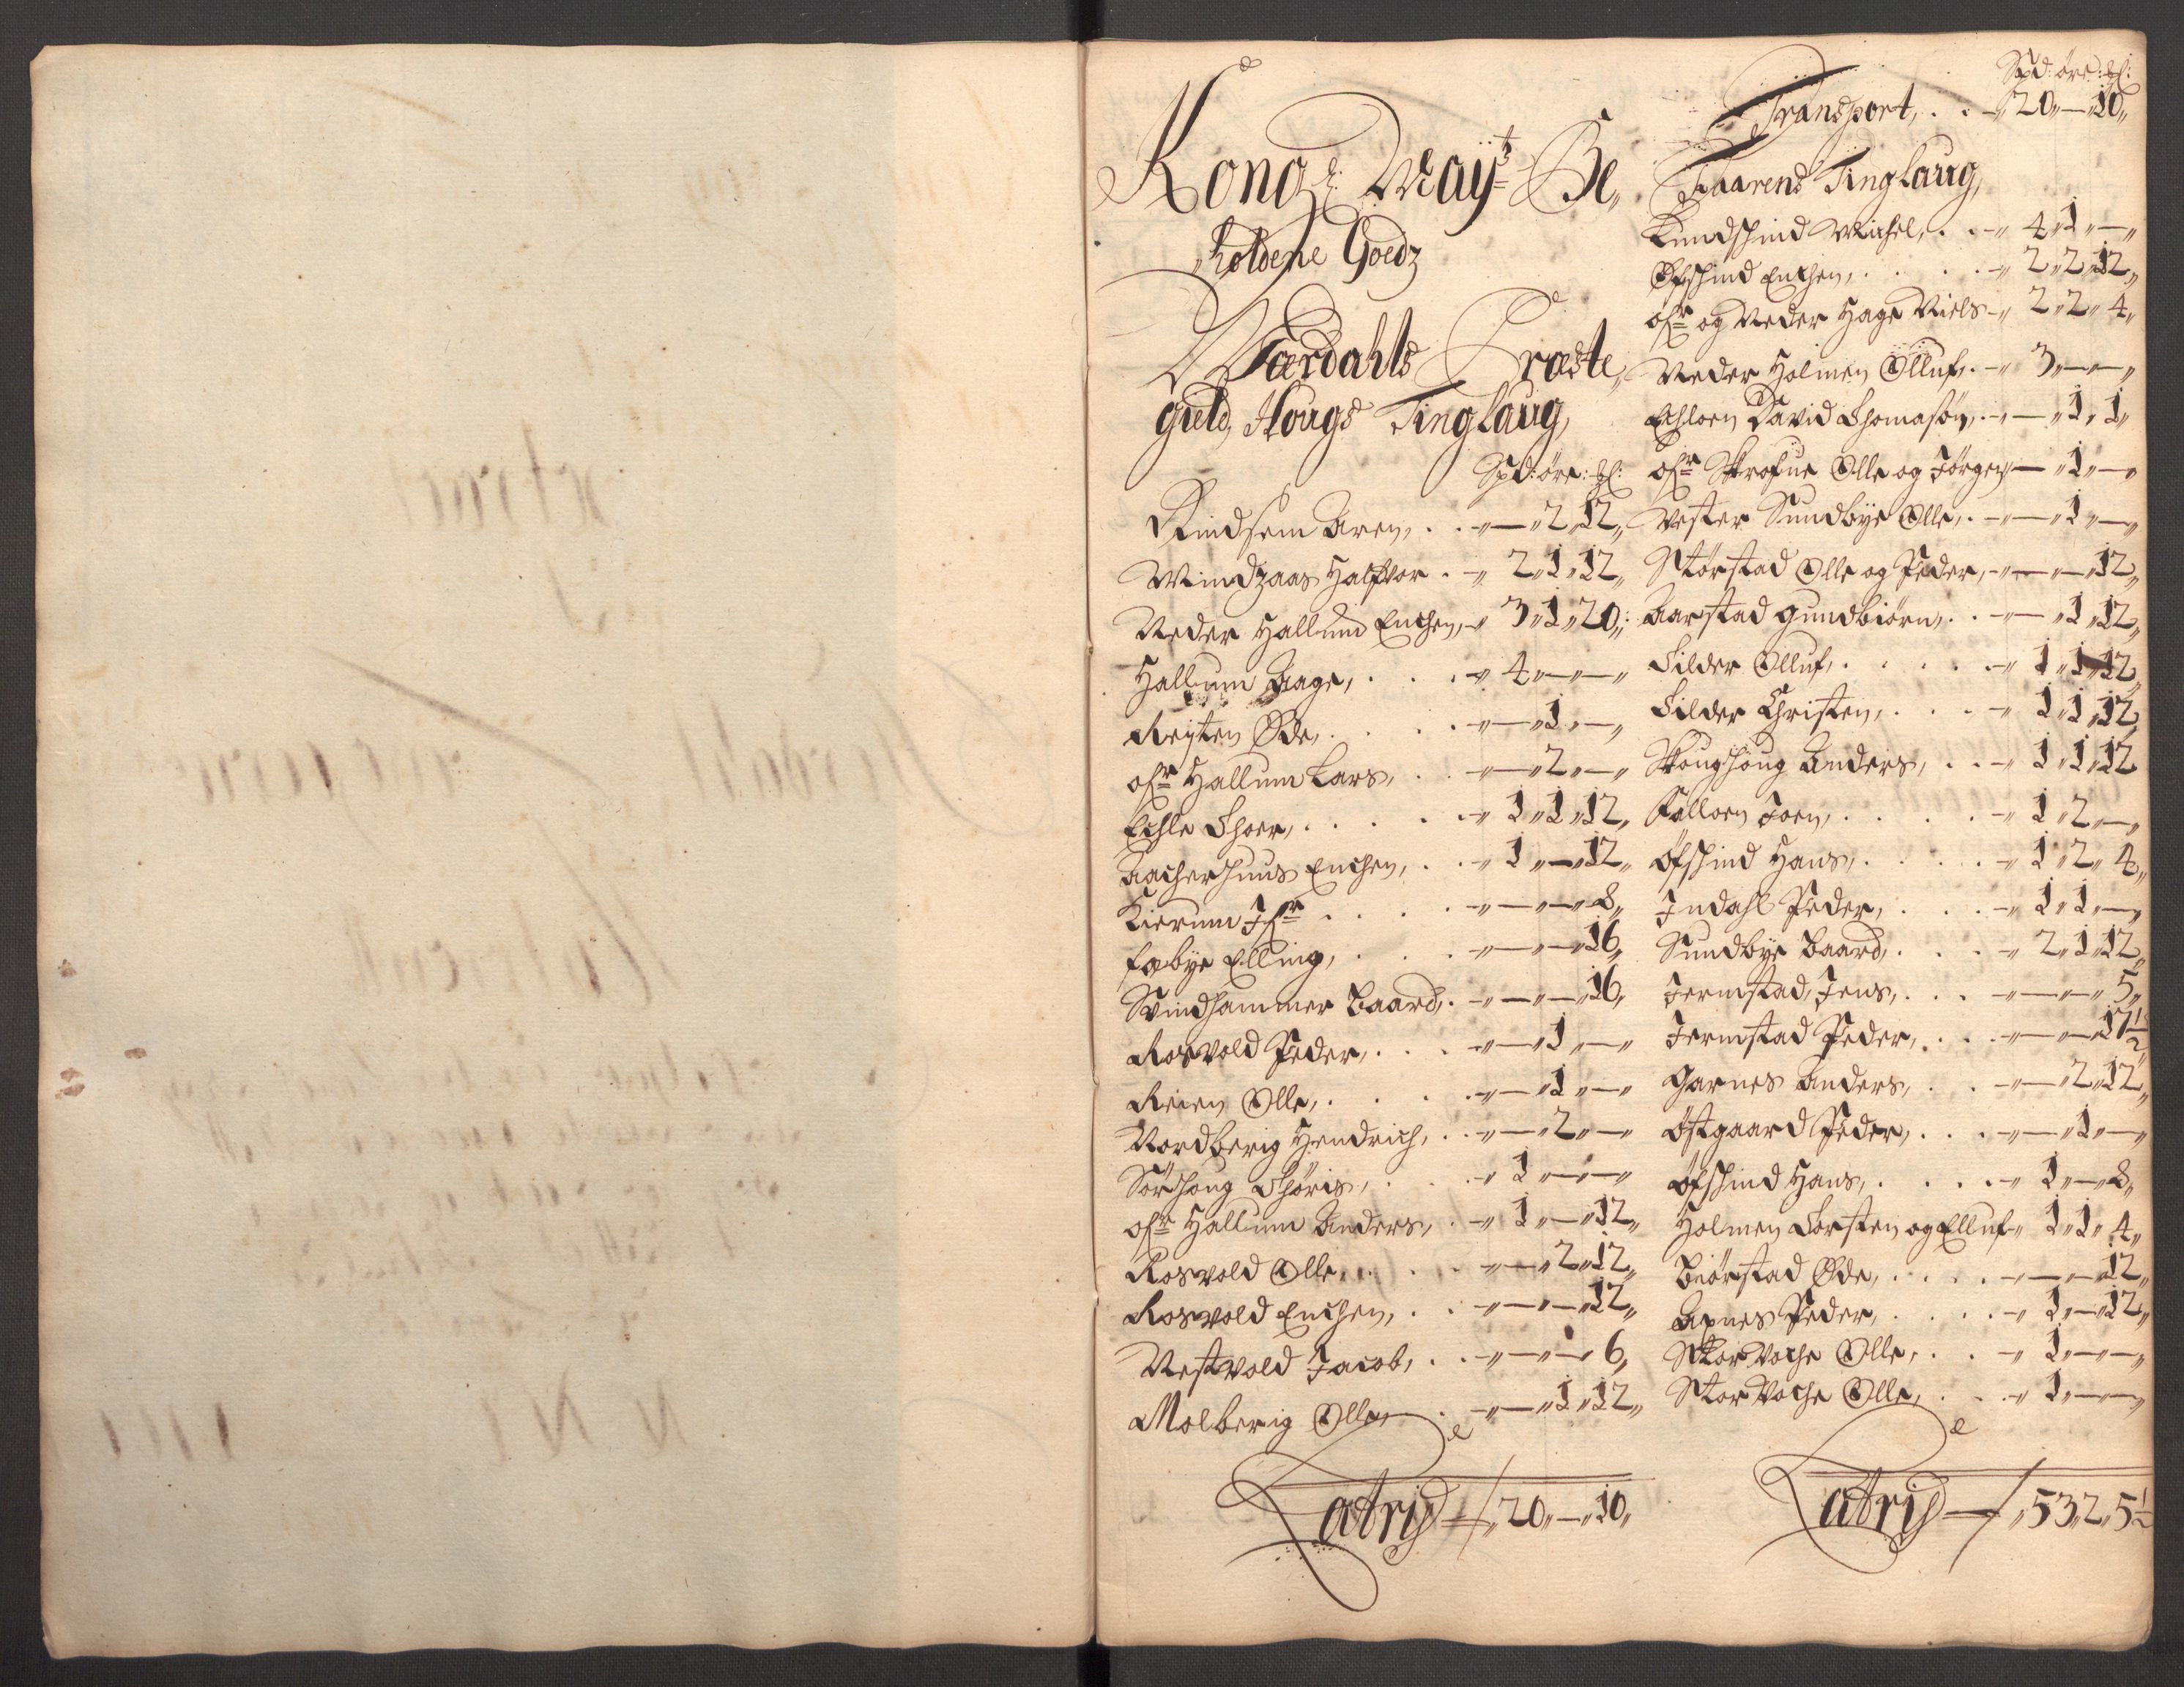 Kong: Mayt: Be„
holdene Goedz
Værdahls Præste„
gield, Hougs Tinglaug,
Spd: öre: ſl:
Rindsem Aren, . . „—„ 2„ 12„
Windzaas Halfvor . „ 2„ 1„ 12„
Neder Hallum Enchen, „ 3„ 1„ 20„
Hallum Aage, . . . „ 4„—„—„
Reisten Öde, . . . „—„ 1„—„
ofr Hallum Lars, . . „—„ 2„—„
Echle Thoer, . . . . „ 1„ 1„ 12„
Aacherhuus Enchen, . . „ 1„—„ 12„
Kierum . . . . „—„—„ 8„
fæbye Elling, . . . „—„—„ 16„
Svindhammer Baard, . „—„—„ 16„
Rosvold Peder, . . . „—„ 1„—„
Reien Olle, . . . . „—„ 1„—„
Nordberig Hendrich, . . „—„ 2„—„
Sörhoug Thöris, . . . „ 1„—„—„
ofr Hallum Anders, . „ 1„—„ 12„
Rosvold Olle, . . . „—„ 2„ 12„
Rosvold Enchen, . . „—„—„ 12„
Nestvold Jacob, . . „—„—„ 6„
Molberig Olle, . „—„ 1„ 12„
Latris „ 20„—„ 10„
Spd: öre: ſl:
Transport, . . „ 20„—„ 10„
Tinglaug,
Kundshind Michel, . . „ 4„ 1„—„
Öfshind Enchen, . . . . „ 2„ 2„ 12„
ofr og Neder Hage Niels „ 2„ 2„ 4„
Neder Holmen Olluf, . „ 3„—„—„
Echloen David Thomasön, . „—„ 1„ 1„
ofr Skrofue Olle og Jörgen „—„ 1„—„
Vester Sundbye Olle, . „—„ 1„—„
Störstad Olle og Peder, „—„—„ 12„
Aarstad Gundbiörn, . . „—„ 1„ 12„
Tilder Olluf, . . . . . „ 1„ 1„ 12„
Tilder Christen, . . . „ 1„ 1„ 12„
Skoughoug Anders, . . „ 1„ 1„ 12
Kalloen Joen, . . . . „ 1„ 2„—„
Öfshind Hans, . . . . „ 1„ 2„ 4„
Indahl Peder, . . . „ 1„ 1„—„
Sundbye Baard, . . . „ 2„ 1„ 12„
Jermstad, Jens, . . . „—„—„ 5„
Jermstad Peder, . . . „—„—„ 17½
Garnes Anders, . . „—„ 2„ 12„
Östgaard Peder, . . . „—„ 1„—„
Öfshind Hans, . . . . „ 1„—„ 8„
Holmen Torsten og Elluf „ 1„ 1„ 4„
Biörstad Öde, . . . . „—„—„ 12„
Axnes Peder, . . . . „ 1„—„ 12„
Stor Voche Olle, . . „ 1„—„—„
Stor Voche Olle, . . „ 1„—„—„
Latris „ 53„ 2„ 5½